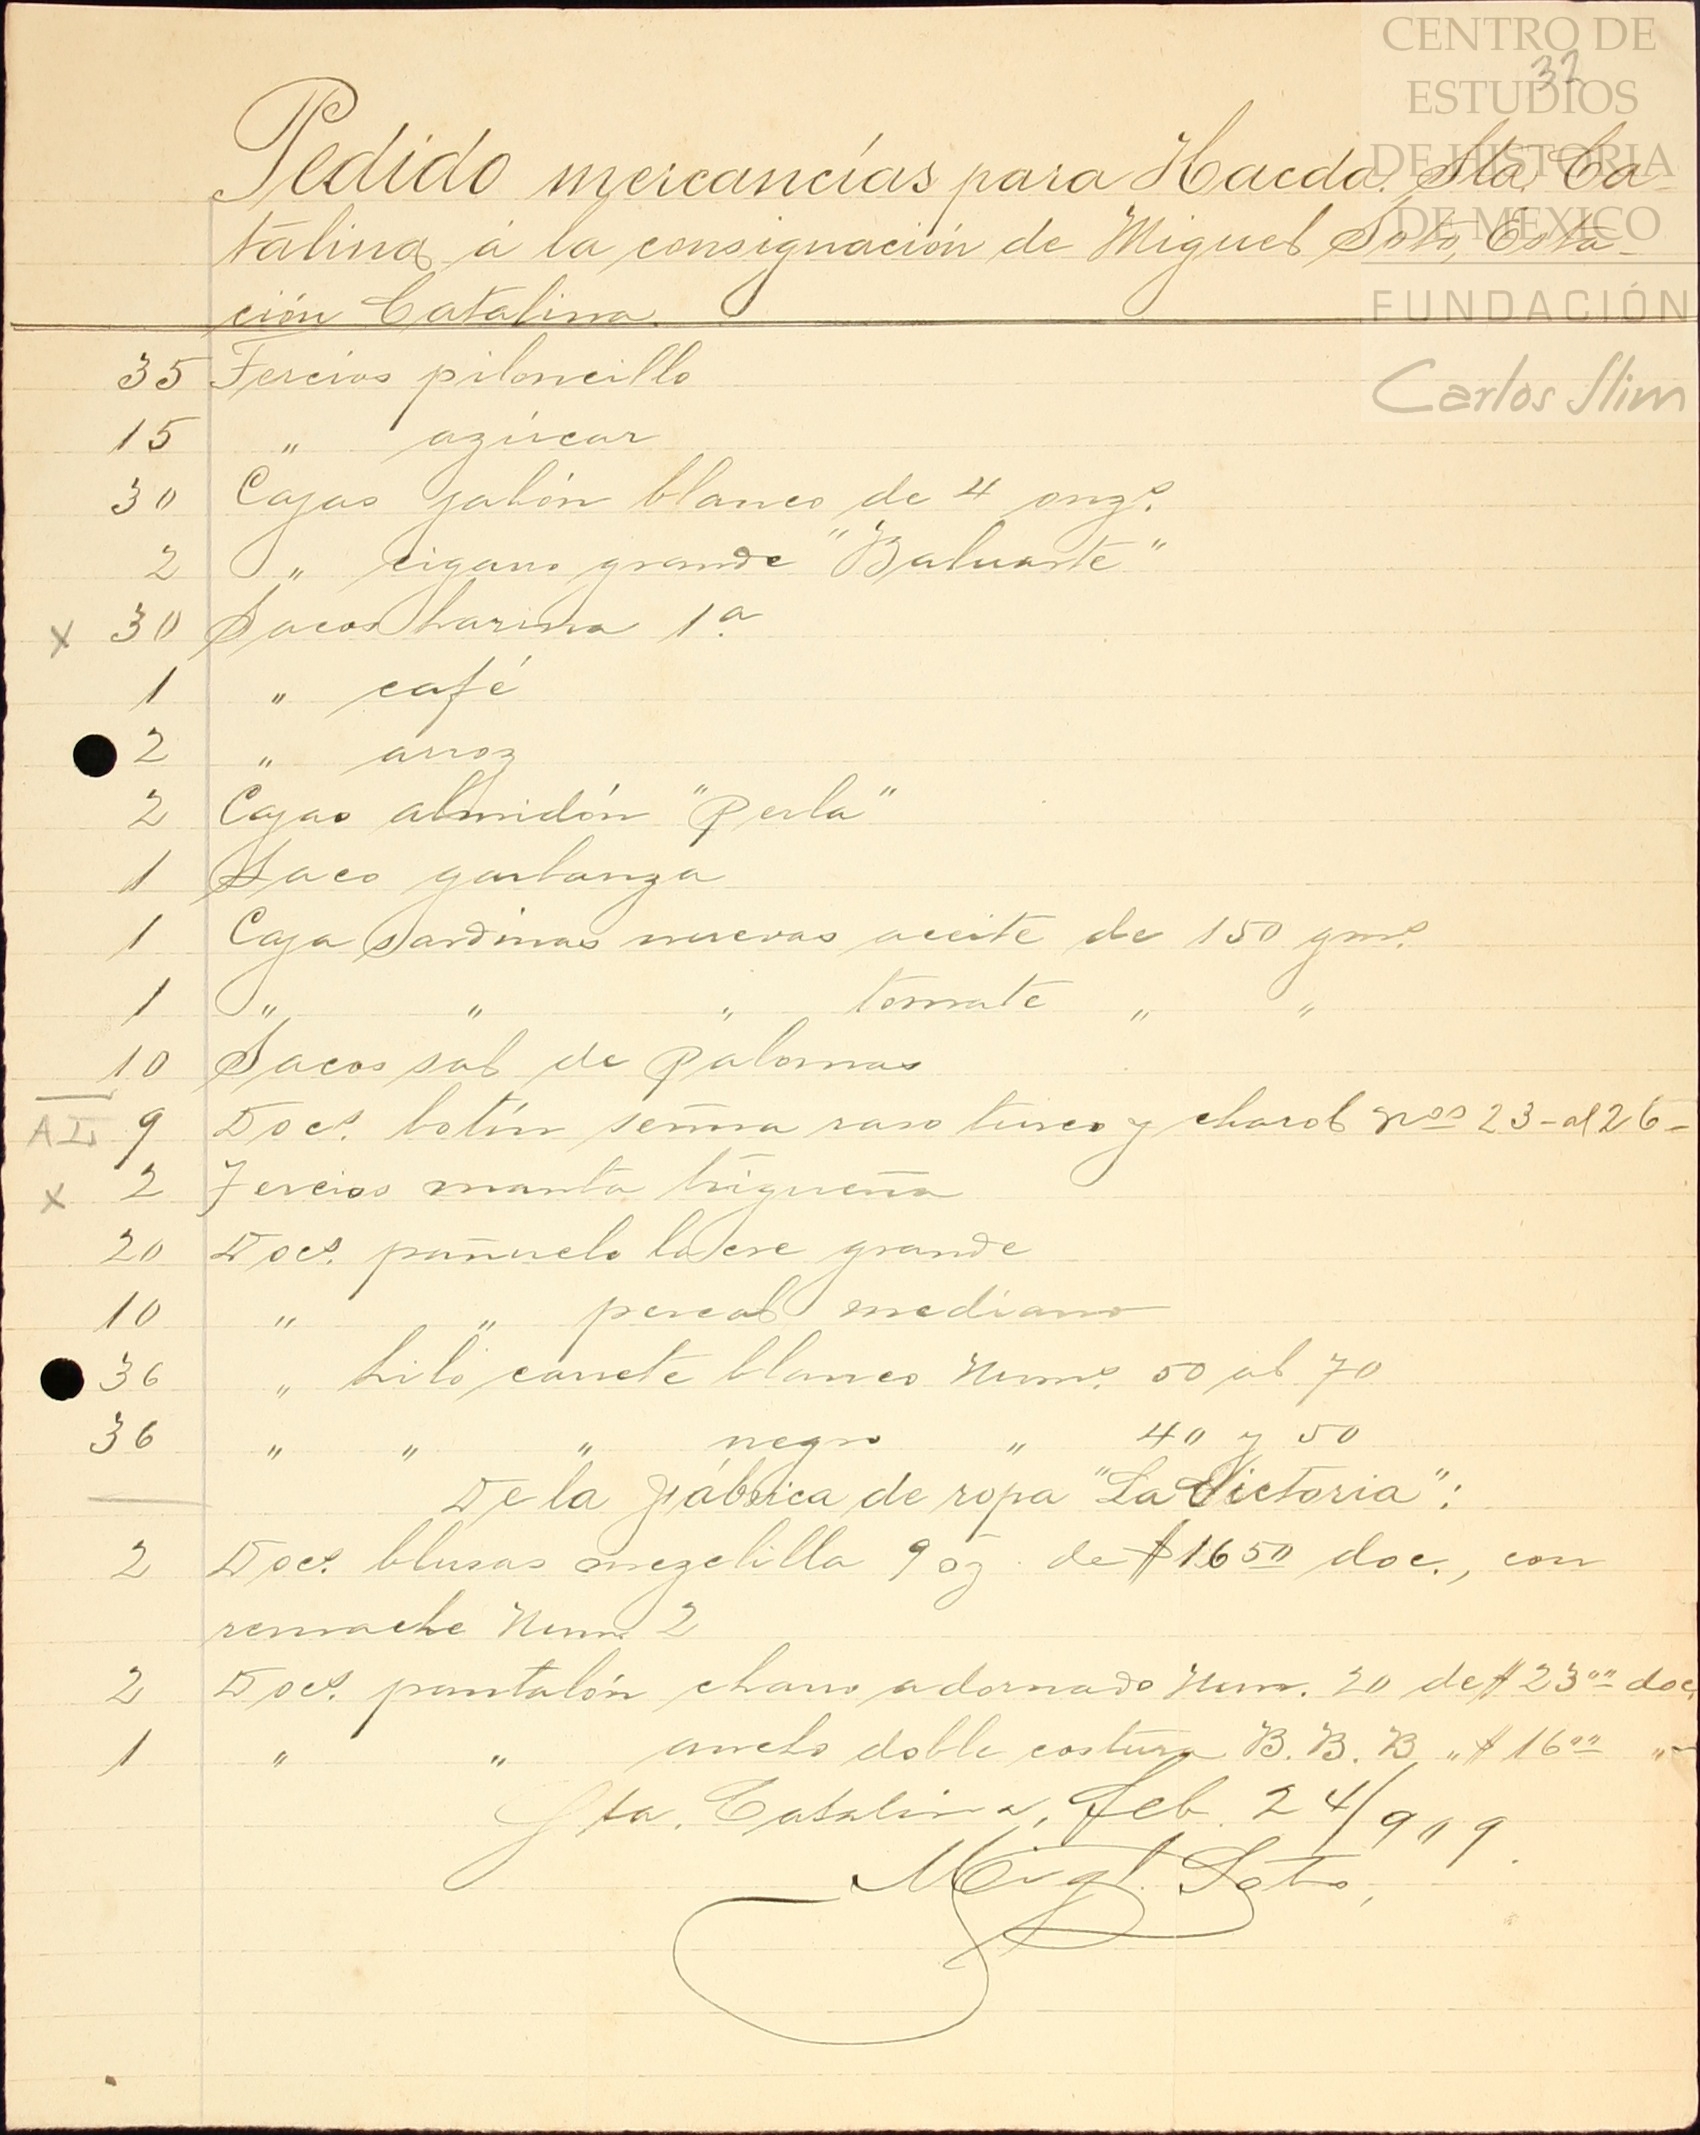 CENTRO DE
ESTUDIOS
DE HISTORIA
DE MÉXICO
FUNDACIÓN
Carlos Slim
32
Pedido mercancías para Hacda. Sta. Ca-
talina á la consignación de Miguel Soto, Esta-
ción Catalina.
35 Tercios piloncillo
15 " azúcar
30 Cajas jabón blanco de 4 onzs.
2 " cigarro grande "Baluarte"
x 30 Sacos harina 1a.
1 " café
2 " arroz
2 Cajas almidón "Perla"
1 Saco garbanza
1 Caja sardinas nuevas aceite de 150 gms.
1 " " " tomate " "
10 Sacos sal de Palomas
9 Docs. botín señora raso turco y charol Nos 23-al 26-
x 2 Tercios manta trigueña
20 Docs. pañuelo lacre grande
10 " " percal mediano
36 " hilo carrete blanco Nums. 50 al 70
36 " " " negro " 40 y 50
De la fábrica de ropa "La Victoria":
2 Docs. blusas mezclilla 9 oz. de $16 50 doc., con
remache Num. 2
2 Docs. pantalón charro adornado Num. 20 de $ 23 00 doc.
1 " " ancho doble costura B. B. B. " $ 16 00 "
Sta. Catalina, Feb. 24/909.
Migl. Soto,